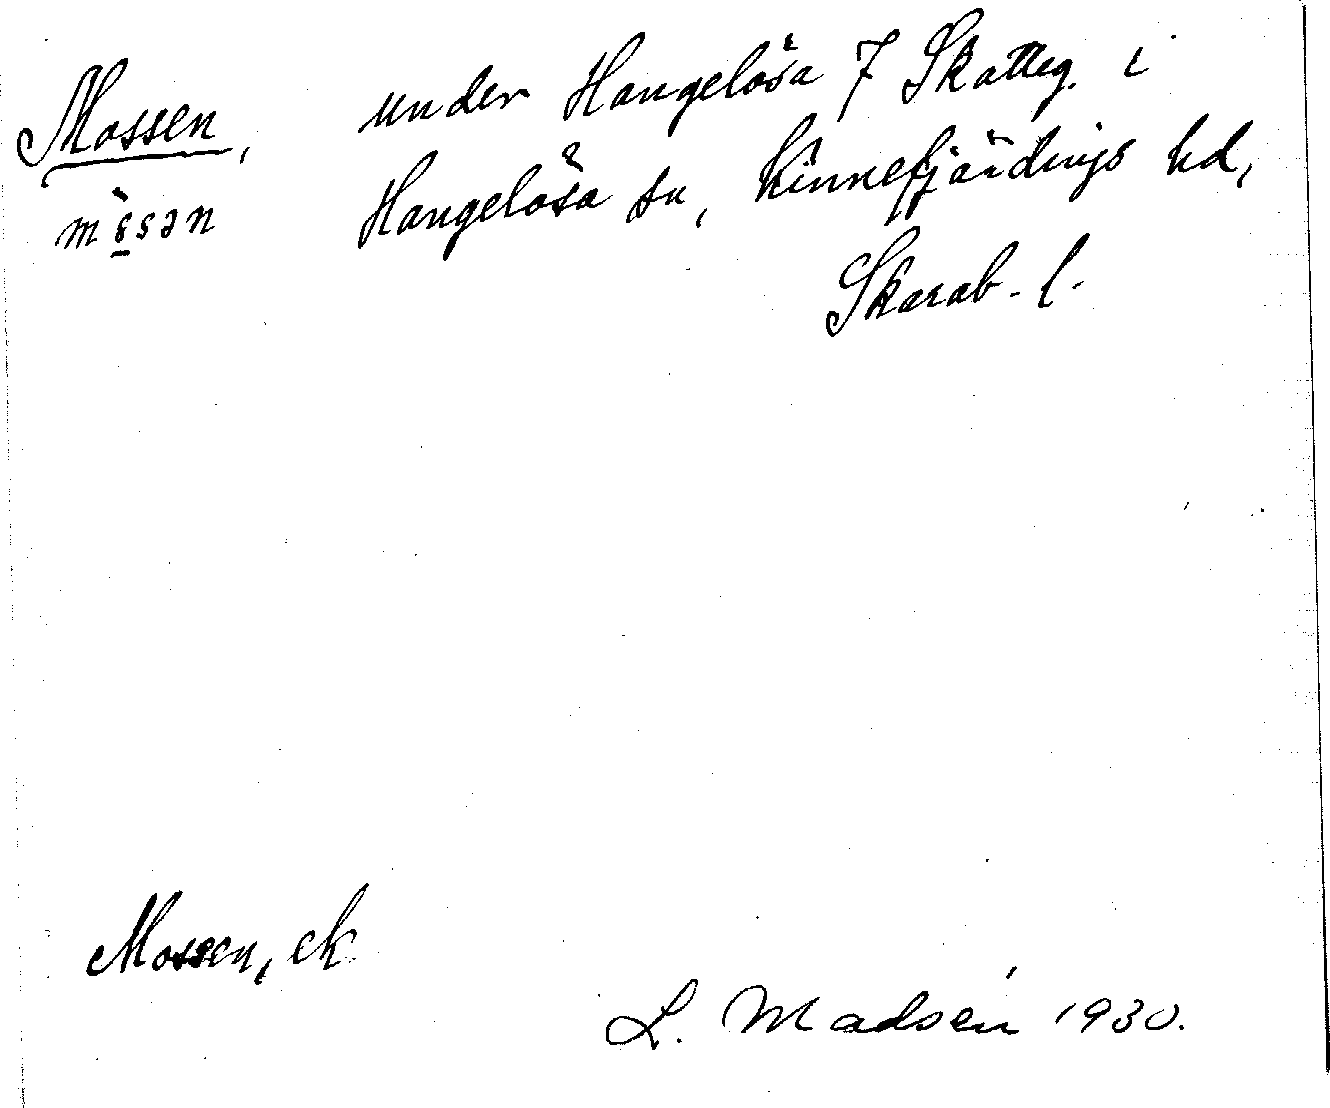 Mossen, under Hangelösa 7 Skatteg. i
Hangelösa sn, Kinnefjärdings hd,
Skarab. l.
Mossen, ek
L. Madsén 1930.